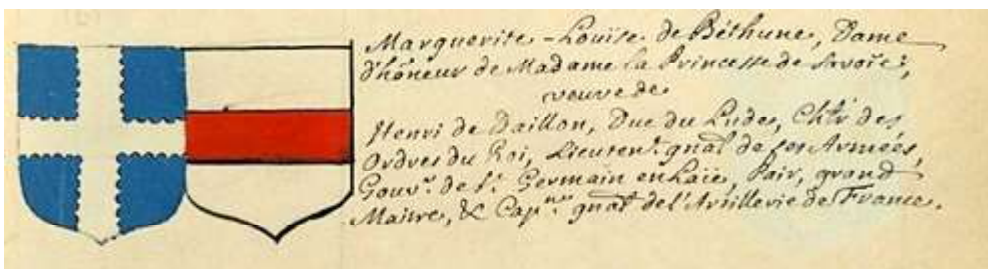 Marguerite-Louise de Béthune, Dame
d'hôneur de Madame la Princesse de Savoïe,
veuve de
Henri de Daillon, Duc du Ludes, Chlr des
Ordres du Roi, Lieutent. gnal de ses Armées,
Gouvr. de St. Germain en Laie, Pair, grand
Maitre, & Capne. gnal de l'Artillerie de France.